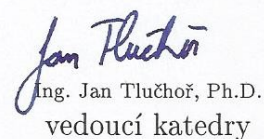 Jan Tluchoř
Ing. Jan Tluchoř, Ph.D.
vedoucí katedry